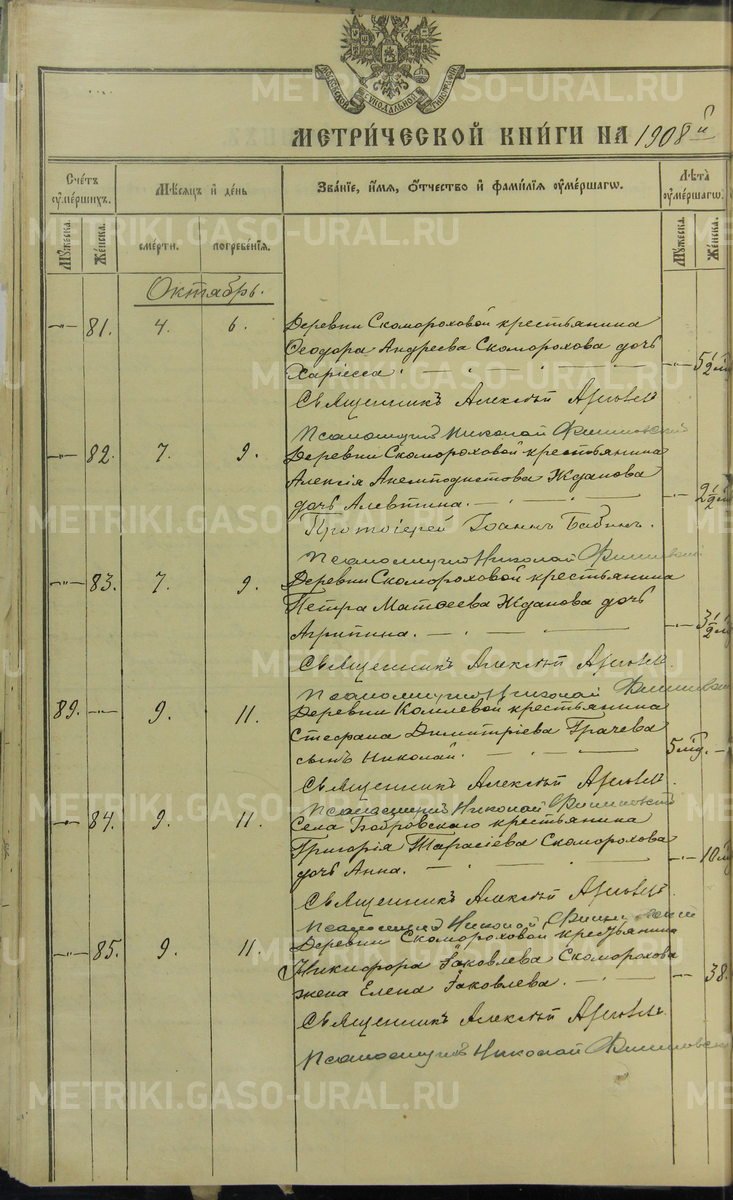 МЕТРИ́ЧЕСКОЙ КНИ́ГИ НА 1908 й
Сче́тъ ᲂуме́ршихъ.
Мѣсяцъ и де́нь
Зва́нїе, и́мя, ᲂ́тчество и фами́лїя ᲂуме́ршагѡ.
Лѣта̀ ᲂуме́ршагѡ.
Му́жеска.
Же́нска.
сме́рти.
погребе́нїя.
Му́жеска.
Же́нска.
Октябрь.
—"— 81. 4. 6. Деревни Скомороховой крестьянина
Ѳеодора Андреева Скоморохова дочь
Харіесса. —"— 5 1/2
Священникъ Алексѣй
Псаломщикъ Николай
—"— 82. 7. 9. Деревни Скомороховой крестьянина
Алексія Акемподистова Жданова
дочь Алевтина. —"— 2 1/2
Протоіерей Іоаннъ Бабинъ.
Псаломщикъ Николай
—"— 83. 7. 9. Деревни Скомороховой крестьянина
Петра Матѳеева Жданова дочь
Агрипина. —"— 3 1/2
Священникъ Алексѣй
Псаломщикъ Николай
89. —"— 9. 11. Деревни крестьянина
Стефана Димитріева Грачева
сынъ Николай. 5 —
Священникъ Алексѣй
Псаломщикъ Николай
—"— 84. 9. 11. Села Бобровскаго крестьянина
Григорія Тарасіева Скоморохова
дочь Анна. —"— 10
Священникъ Алексѣй
Псаломщикъ Николай
—"— 85. 9. 11. Деревни Скомороховой крестьянина
Никифора Іаковлева Скоморохова
жена Елена Іаковлева. —"— 38.
Священникъ Алексѣй
Псаломщикъ Николай
METRIKI.GASO-URAL.RU